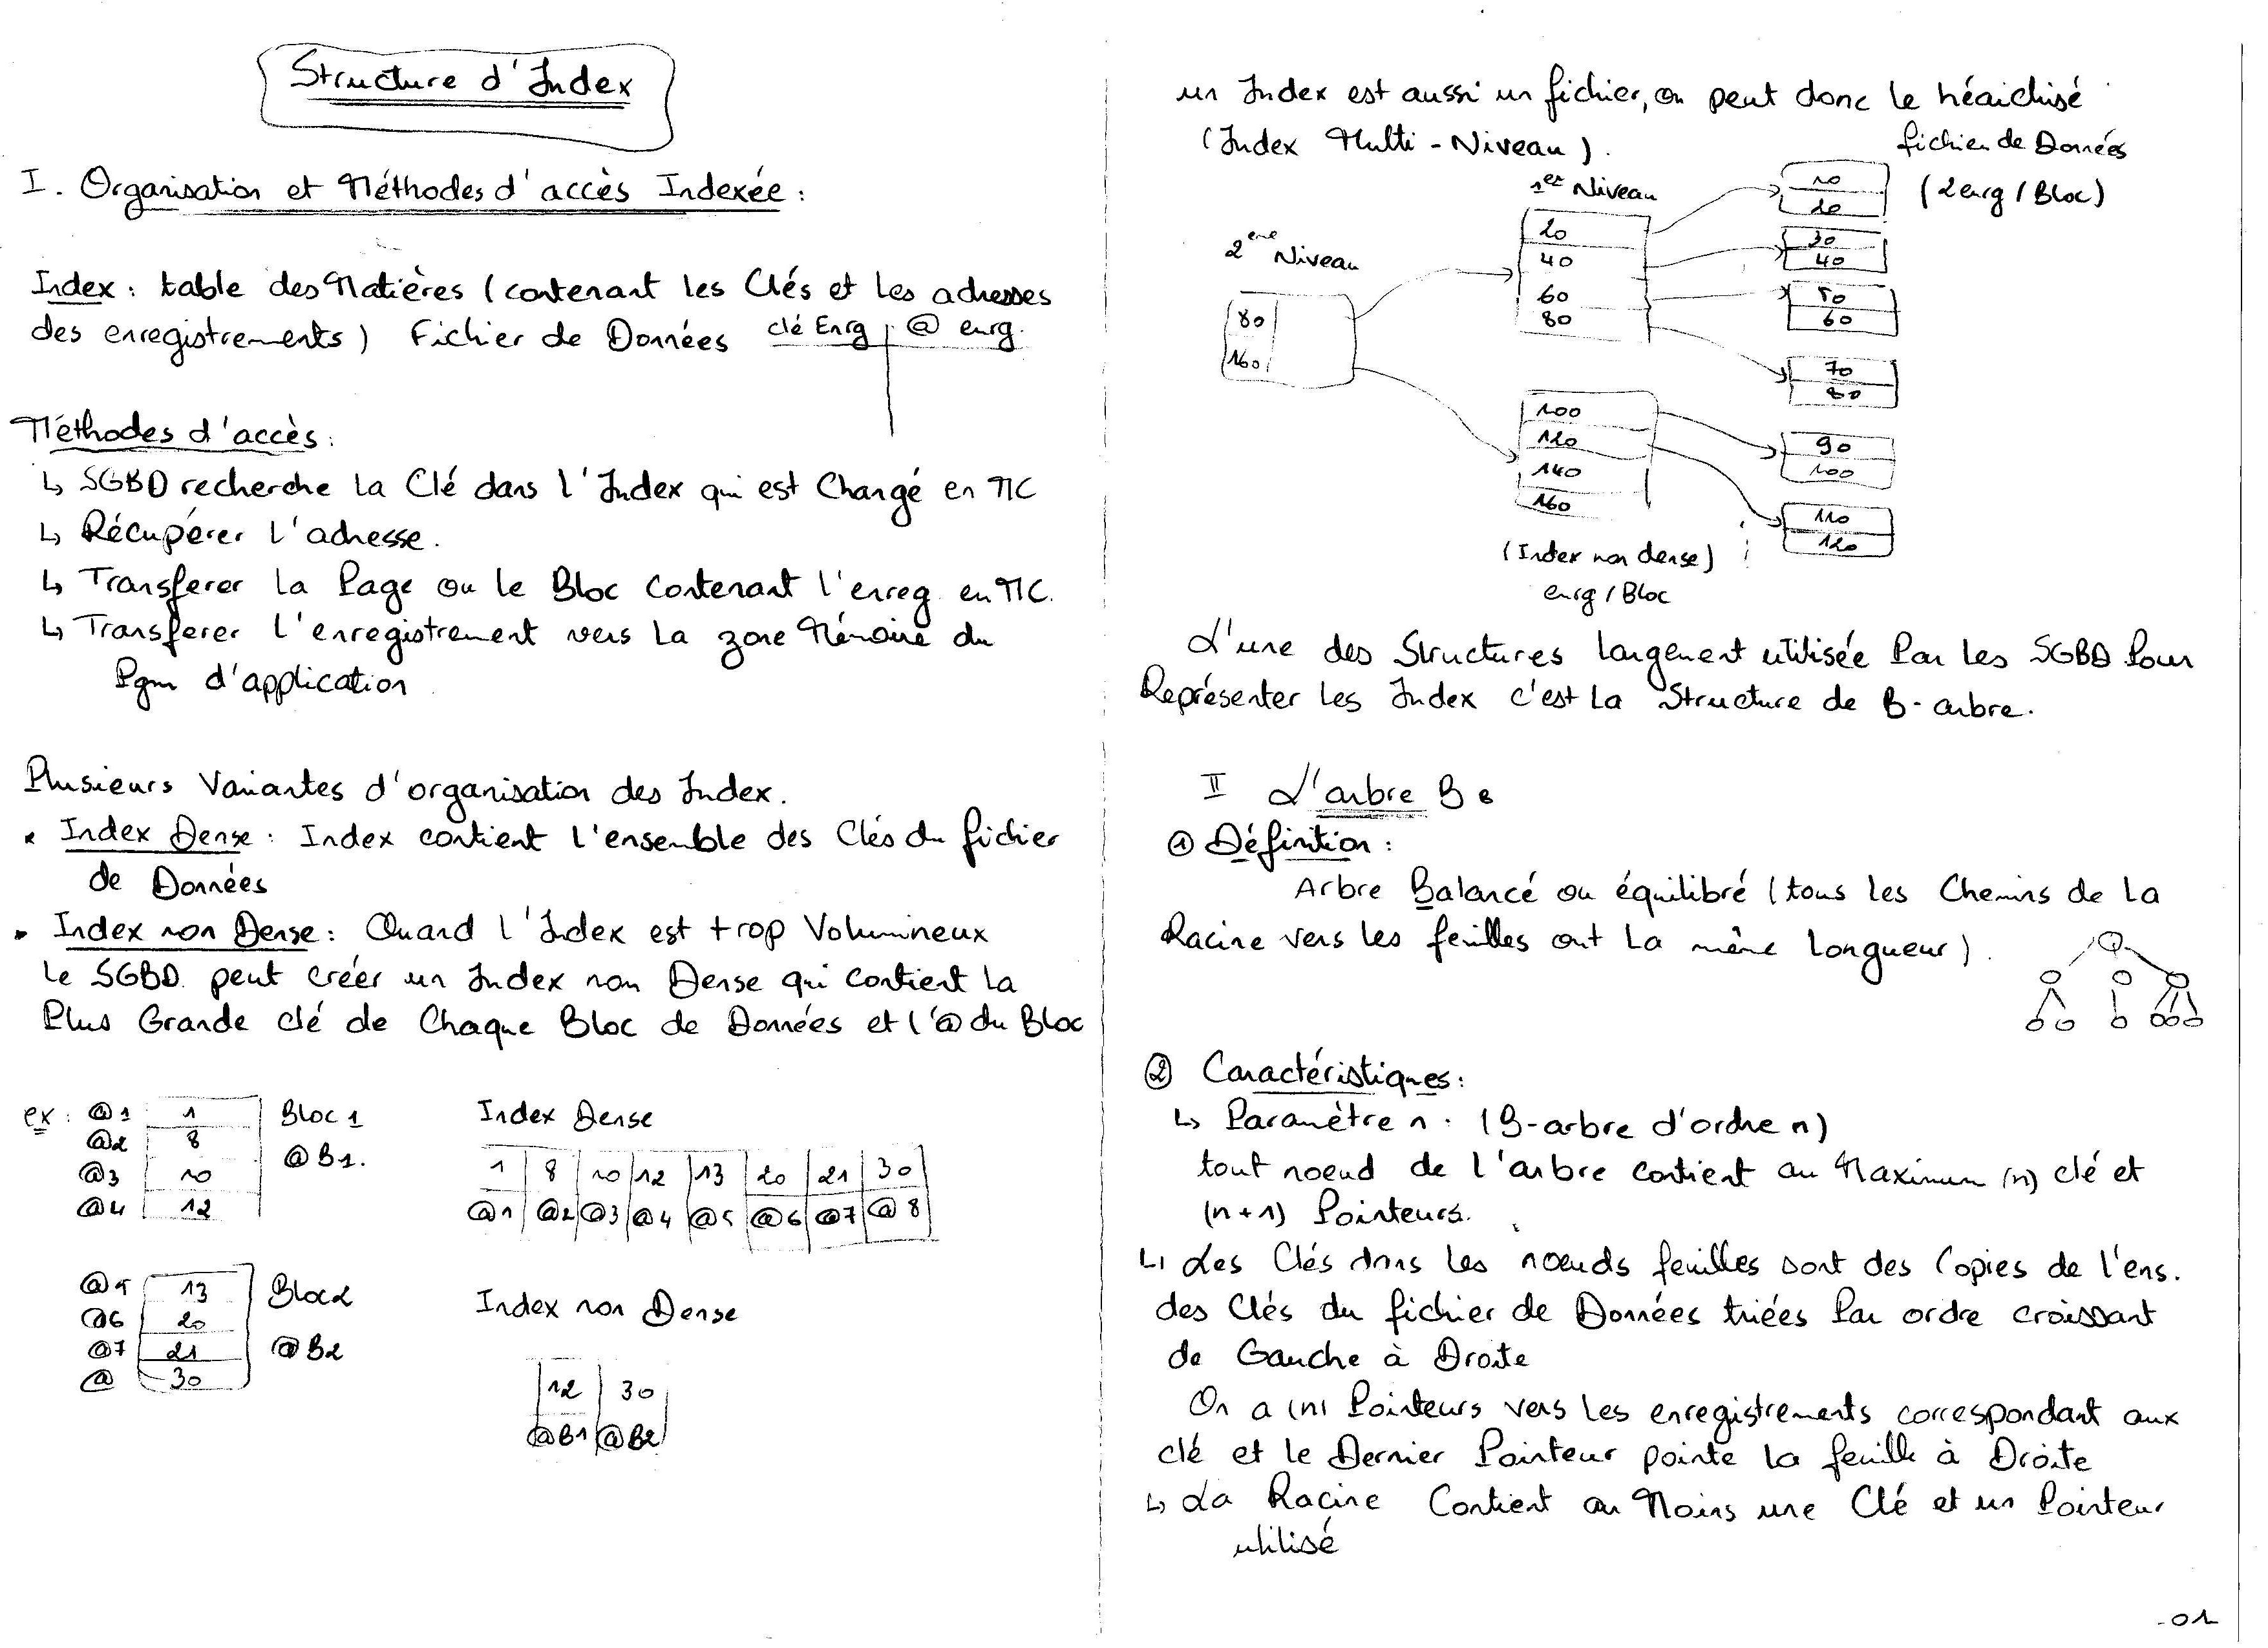 Structure d'Index
I. Organisation et Méthodes d'accès Indexée :
Index : table des Matières (contenant les Clés et les adresses
des enregistrements) Fichier de Données clé Enrg | @ enrg.
Méthodes d'accès :
↳ SGBD recherche la Clé dans l'Index qui est Changé en MC
↳ Récupérer l'adresse.
↳ Transferer la Page ou le Bloc Contenant l'enreg en MC.
↳ Transferer l'enregistrement vers la zone Mémoire du
Pgm d'application
Plusieurs Variantes d'organisation des Index.
• Index Dense : Index contient l'ensemble des Clés du fichier
de Données
• Index non Dense : Quand l'Index est trop Volumineux
le SGBD peut créer un Index non Dense qui contient la
Plus Grande clé de Chaque Bloc de Données et l'@ du Bloc
ex : @1 1 Bloc 1
@2 8
@3 10 @B1.
@4 12
Index Dense
1 8 10 12 13 20 21 30
@1 @2 @3 @4 @5 @6 @7 @8
@5 13 Bloc2
@6 20
@7 21 @B2
@ 30
Index non Dense
12 30
@B1 @B2
un Index est aussi un fichier, on peut donc le héaichisé
(Index Multi-Niveau).
fichier de Données
(2 enrg / Bloc)
1er Niveau
2eme Niveau
80
160
20
40
60
80
100
120
140
160
10
20
30
40
50
60
70
80
90
100
110
120
(Index non dense)
enrg / Bloc
L'une des Structures largement utilisée Par les SGBD Pour
Représenter les Index c'est la Structure de B-arbre.
II L'arbre B :
① Définition :
Arbre Balancé ou équilibré (tous les Chemins de la
Racine vers les feuilles ont la même longueur).
② Caractéristiques :
↳ Paramètre n. (B-arbre d'ordre n)
tout noeud de l'arbre contient au Maximum (n) clé et
(n+1) Pointeurs.
↳ Les Clés dans les noeuds feuilles sont des Copies de l'ens.
des Clés du fichier de Données triées Par ordre croissant
de Gauche à Droite
On a (n) Pointeurs vers les enregistrements correspondant aux
clé et le Dernier Pointeur pointe la feuille à Droite
↳ La Racine Contient au Moins une Clé et un Pointeur
utilisé
-01